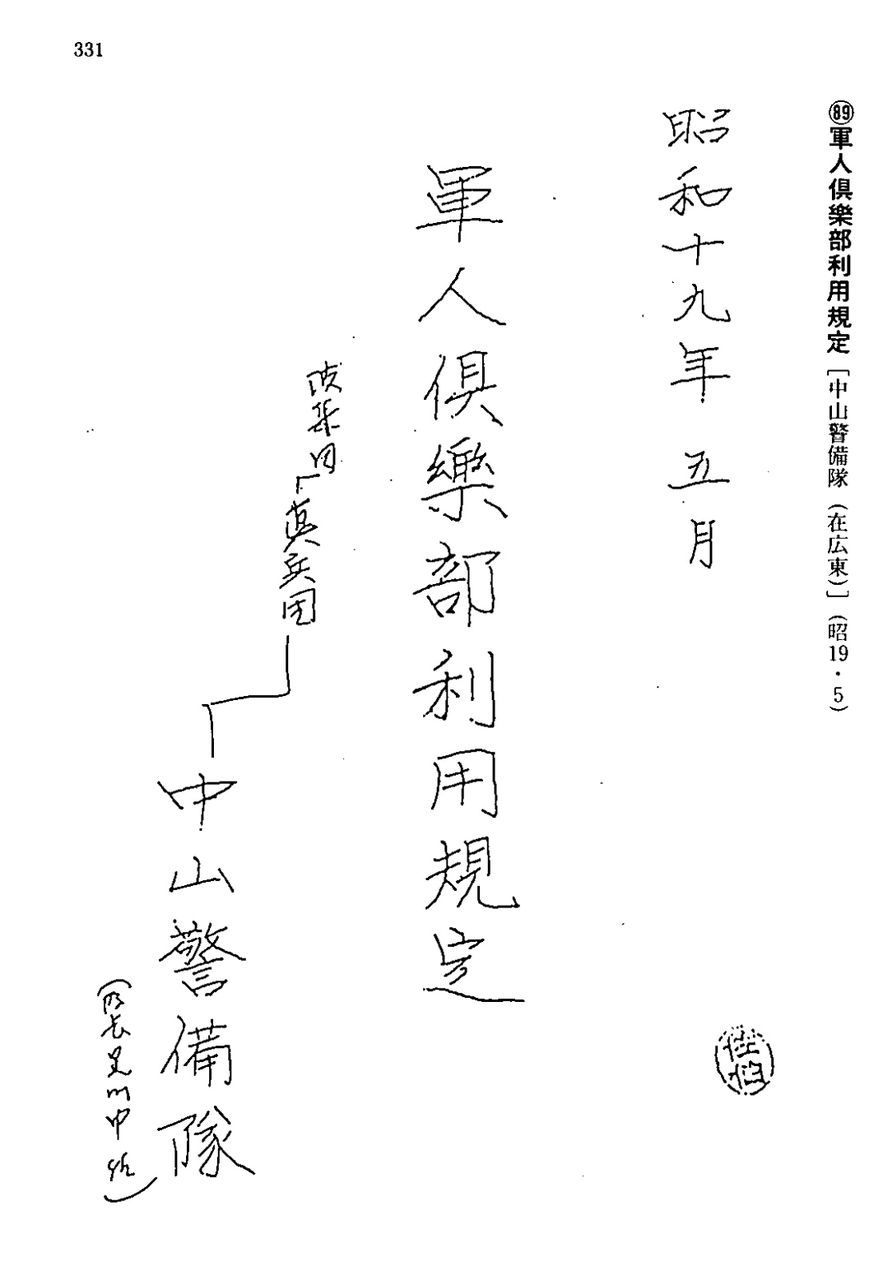 331
㊇軍人倶樂部利用規定［中山警備隊（在広東）］（昭19・5）
昭和十九年 五月
軍人倶樂部利用規定
兵団
中山警備隊